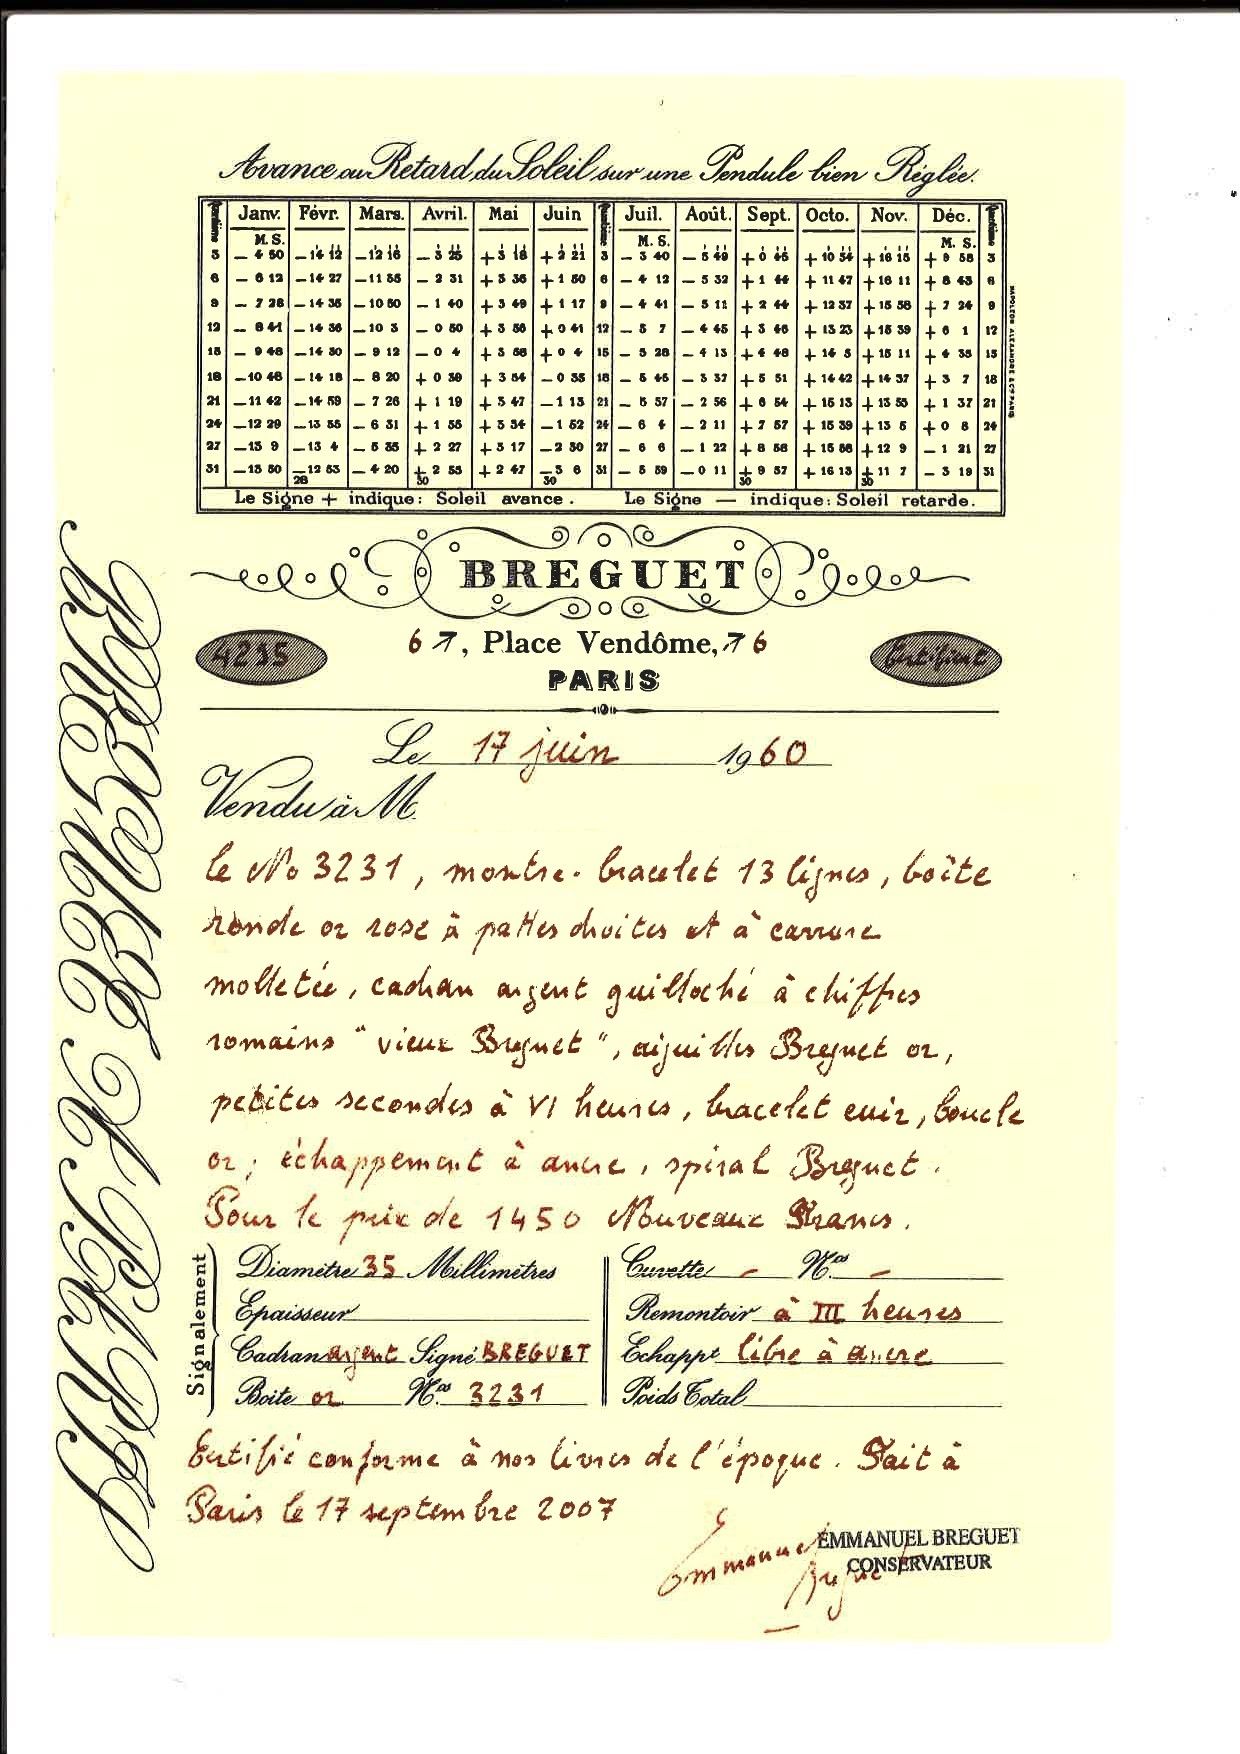 Avance ou Retard du Soleil sur une Pendule bien Réglée.
Janv. Févr. Mars. Avril. Mai Juin Juil. Août. Sept. Octo. Nov. Déc.
M. S. M. S. M. S.
3 — 4 50 —14 12 —12 16 — 3 25 +3 18 +2 21 3 — 3 40 — 5 49 +0 45 +10 54 +16 15 +9 58 3
6 — 6 12 —14 27 —11 35 — 2 31 +3 36 +1 50 6 — 4 12 — 5 32 +1 44 +11 47 +16 11 +8 43 6
9 — 7 28 —14 35 —10 50 — 1 40 +3 49 +1 17 9 — 4 41 — 5 11 +2 44 +12 37 +15 58 +7 24 9
12 — 8 41 —14 36 —10 3 — 0 50 +3 56 +0 41 12 — 5 7 — 4 45 +3 46 +13 23 +15 39 +6 1 12
15 — 9 46 —14 30 — 9 12 — 0 4 +3 56 +0 4 15 — 5 28 — 4 13 +4 48 +14 5 +15 11 +4 35 15
18 —10 46 —14 18 — 8 20 +0 39 +3 54 —0 35 18 — 5 45 — 3 37 +5 51 +14 42 +14 37 +3 7 18
21 —11 42 —14 59 — 7 26 +1 19 +3 47 —1 13 21 — 5 57 — 2 56 +6 54 +15 13 +13 55 +1 37 21
24 —12 29 —13 35 — 6 31 +1 55 +3 34 —1 52 24 — 6 4 — 2 11 +7 57 +15 39 +13 5 +0 8 24
27 —13 9 —13 4 — 5 35 +2 27 +3 17 —2 30 27 — 6 6 — 1 22 +8 58 +15 58 +12 9 —1 21 27
31 —13 50 —12 53 — 4 20 +2 53 +2 47 —3 6 31 — 5 59 —0 11 +9 57 +16 13 +11 7 —3 19 31
28 30 30 30 30
Le Signe + indique: Soleil avance. Le Signe — indique: Soleil retarde.
BREGUET
4235
6 7, Place Vendôme, 7 6
Certificat
PARIS
BREGUET À PARIS
Le 17 juin 1960
Vendu à M.
le No 3231, montre-bracelet 13 lignes, boîte
ronde or rose à pattes droites et à carrure
molletée, cadran argent guilloché à chiffres
romains "vieux Breguet", aiguilles Breguet or,
petites secondes à VI heures, bracelet cuir, boucle
or; échappement à ancre, spiral Breguet.
Pour le prix de 1450 Nouveaux Francs.
Signalement
Diamètre 35 Millimètres
Epaisseur
Cadran argent Signé BREGUET
Boîte or Nos 3231
Cuvette — Nos —
Remontoir à III heures
Echappt libre à ancre
Poids Total
Certifié conforme à nos livres de l'époque. Fait à
Paris le 17 septembre 2007
Emmanuel Breguet
EMMANUEL BREGUET
CONSERVATEUR